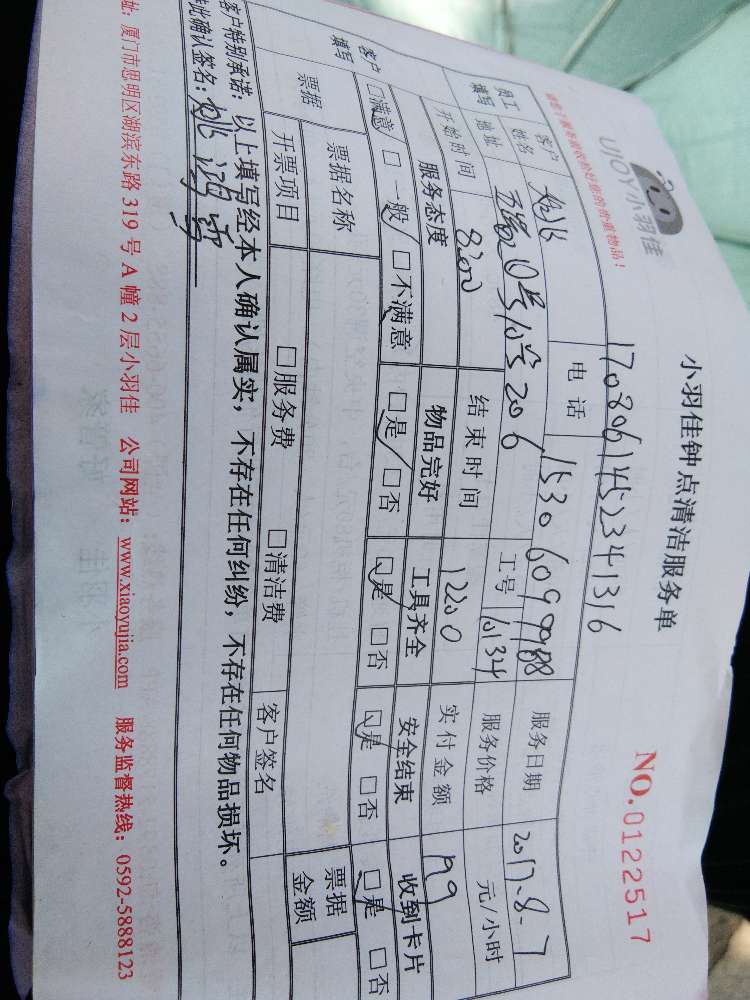 UJOY小羽佳
小羽佳钟点清洁服务单
NO.0122517
1708061452341316
客户 电话 15306099988 服务日期 2017.8.7
员工填写 姓名 工号 10134 服务价格 元/小时
地址 206
开始时间 8:00 结束时间 1200 实付金额 199
客户填写 服务态度 物品完好 工具齐全 安全结束 收到卡片
□满意 □一般 □不满意 □是 □否 □是 □否 □是 □否 □是 □否
票据 票据名称 票据金额
开票项目 □服务费 □清洁费 客户签名
客户特别承诺：以上填写经本人确认属实，不存在任何纠纷，不存在任何物品损坏。
特此确认签名：
址：厦门市思明区湖滨东路319号A幢2层小羽佳 公司网站：www.xiaoyujia.com 服务监督热线：0592-5888123